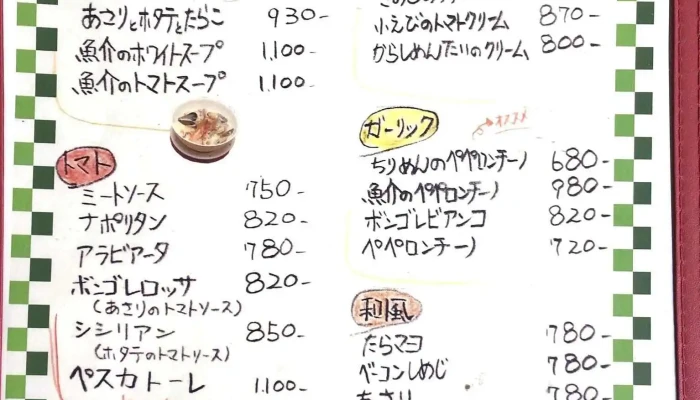 あさりとホタテとたらこ 930-
魚介のホワイトスープ 1,100-
魚介のトマトスープ 1,100-
トマト
ミートソース 750-
ナポリタン 820-
アラビアータ 780-
ボンゴレロッサ 820-
(あさりのトマトソース)
シシリアン 850-
(ホタテのトマトソース)
ペスカトーレ 1,100-
小えびのトマトクリーム 870-
からしめんたいのクリーム 800-
ガーリック
オススメ
ちりめんのペペロンチーノ 680-
魚介のペペロンチーノ 980-
ボンゴレビアンコ 820-
ペペロンチーノ 720-
和風
たらマヨ 780-
ベーコンしめじ 780-
780-